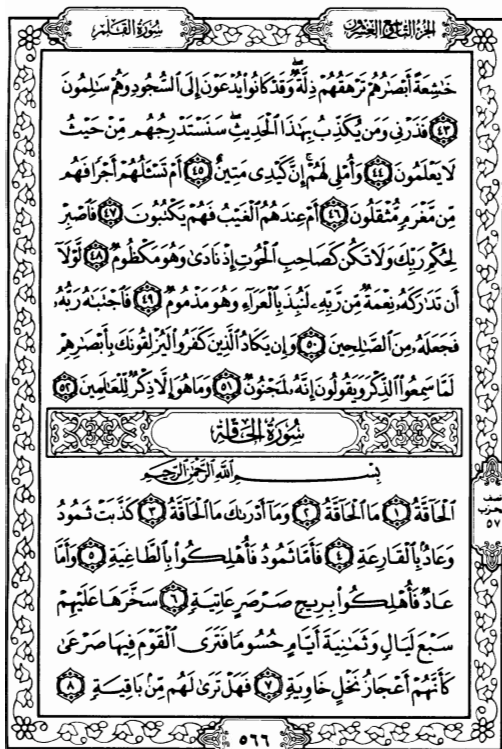 الجزء التاسع والعشرون
سورة القلم
خَٰشِعَةً أَبْصَٰرُهُمْ تَرْهَقُهُمْ ذِلَّةٌ ۖ وَقَدْ كَانُوا۟ يُدْعَوْنَ إِلَى ٱلسُّجُودِ وَهُمْ سَٰلِمُونَ
﴿٤٣﴾ فَذَرْنِى وَمَن يُكَذِّبُ بِهَٰذَا ٱلْحَدِيثِ ۖ سَنَسْتَدْرِجُهُم مِّنْ حَيْثُ
لَا يَعْلَمُونَ ﴿٤٤﴾ وَأُمْلِى لَهُمْ ۚ إِنَّ كَيْدِى مَتِينٌ ﴿٤٥﴾ أَمْ تَسْـَٔلُهُمْ أَجْرًا فَهُم
مِّن مَّغْرَمٍ مُّثْقَلُونَ ﴿٤٦﴾ أَمْ عِندَهُمُ ٱلْغَيْبُ فَهُمْ يَكْتُبُونَ ﴿٤٧﴾ فَٱصْبِرْ
لِحُكْمِ رَبِّكَ وَلَا تَكُن كَصَاحِبِ ٱلْحُوتِ إِذْ نَادَىٰ وَهُوَ مَكْظُومٌ ﴿٤٨﴾ لَّوْلَآ
أَن تَدَٰرَكَهُۥ نِعْمَةٌ مِّن رَّبِّهِۦ لَنُبِذَ بِٱلْعَرَآءِ وَهُوَ مَذْمُومٌ ﴿٤٩﴾ فَٱجْتَبَٰهُ رَبُّهُۥ
فَجَعَلَهُۥ مِنَ ٱلصَّٰلِحِينَ ﴿٥٠﴾ وَإِن يَكَادُ ٱلَّذِينَ كَفَرُوا۟ لَيُزْلِقُونَكَ بِأَبْصَٰرِهِمْ
لَمَّا سَمِعُوا۟ ٱلذِّكْرَ وَيَقُولُونَ إِنَّهُۥ لَمَجْنُونٌ ﴿٥١﴾ وَمَا هُوَ إِلَّا ذِكْرٌ لِّلْعَٰلَمِينَ ﴿٥٢﴾
سورة الحاقة
بِسْمِ ٱللَّهِ ٱلرَّحْمَٰنِ ٱلرَّحِيمِ
ٱلْحَآقَّةُ ﴿١﴾ مَا ٱلْحَآقَّةُ ﴿٢﴾ وَمَآ أَدْرَىٰكَ مَا ٱلْحَآقَّةُ ﴿٣﴾ كَذَّبَتْ ثَمُودُ
وَعَادٌۢ بِٱلْقَارِعَةِ ﴿٤﴾ فَأَمَّا ثَمُودُ فَأُهْلِكُوا۟ بِٱلطَّاغِيَةِ ﴿٥﴾ وَأَمَّا
عَادٌ فَأُهْلِكُوا۟ بِرِيحٍ صَرْصَرٍ عَاتِيَةٍ ﴿٦﴾ سَخَّرَهَا عَلَيْهِمْ
سَبْعَ لَيَالٍ وَثَمَٰنِيَةَ أَيَّامٍ حُسُومًا فَتَرَى ٱلْقَوْمَ فِيهَا صَرْعَىٰ
كَأَنَّهُمْ أَعْجَازُ نَخْلٍ خَاوِيَةٍ ﴿٧﴾ فَهَلْ تَرَىٰ لَهُم مِّنۢ بَاقِيَةٍ ﴿٨﴾
نصف
الحزب
٥٧
٥٦٦